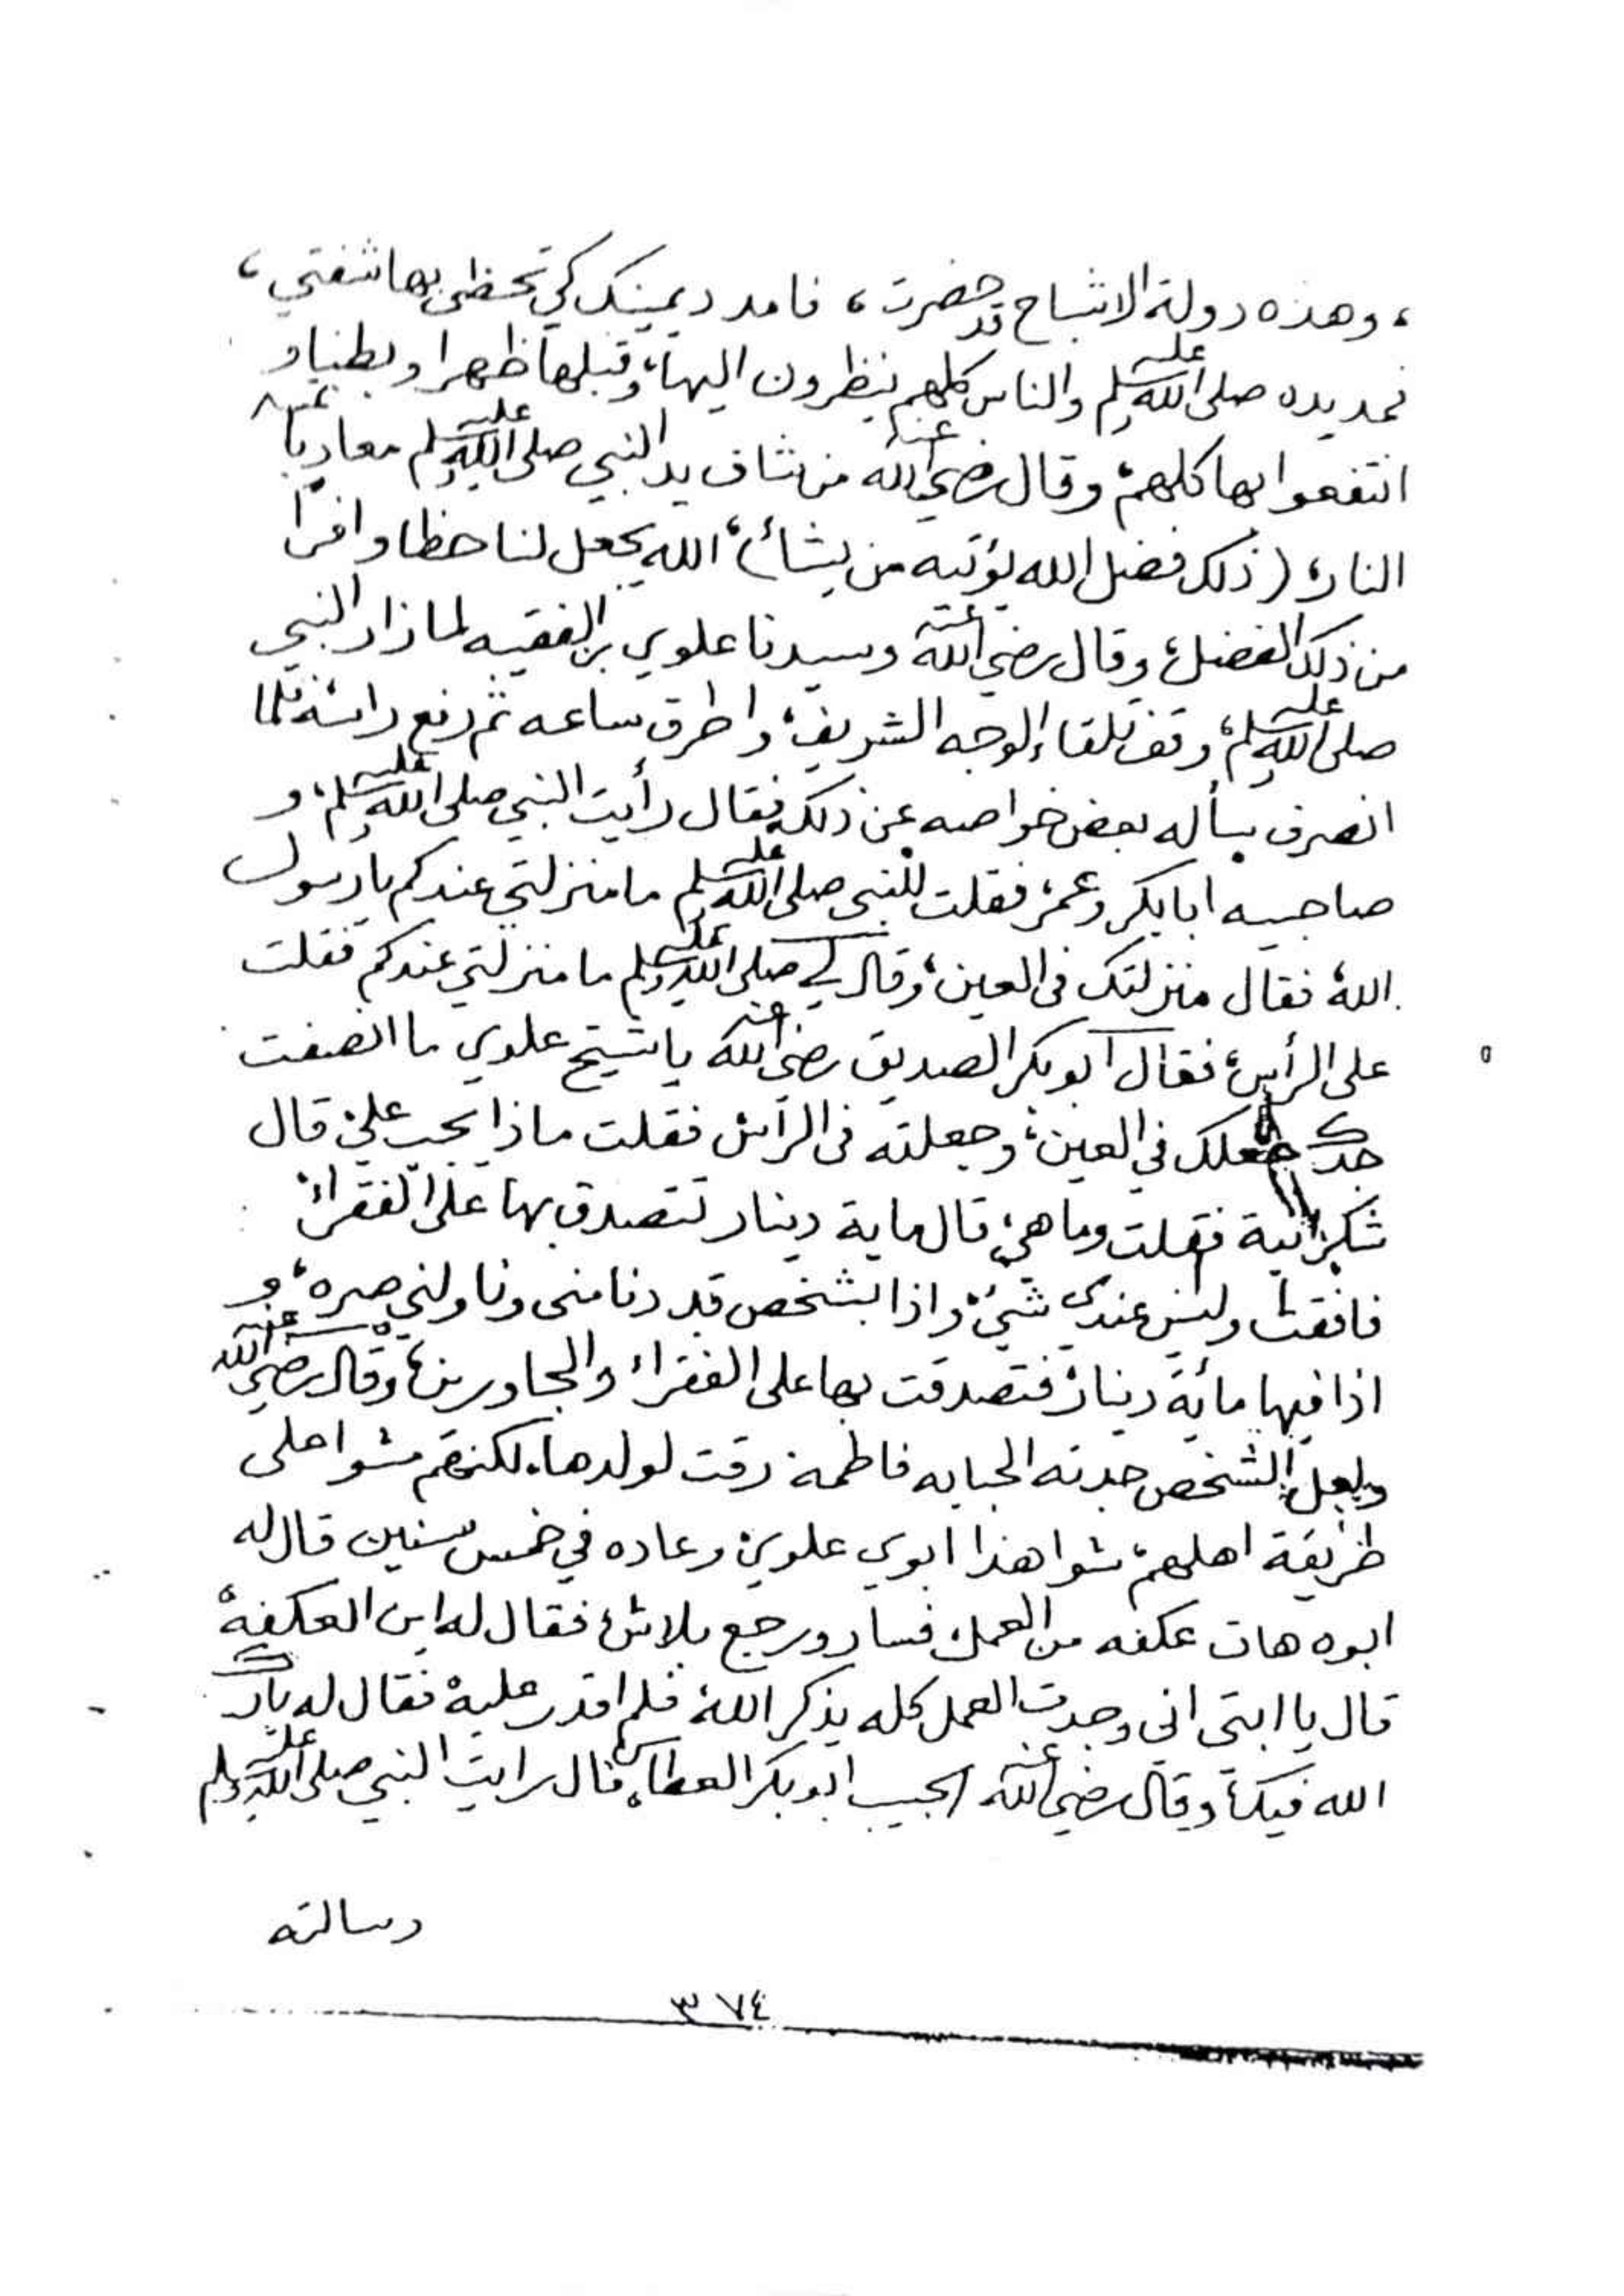 ، وهذه دولة الاشباح قد حضرت ، فامدد يمينك كي تحظى بها شفتي ،
فمد يده صلى الله عليه وسلم والناس كلهم ينظرون اليها، وقبلها ظهرا وبطنا و
انتفعوا بها كلهم، وقال رضي الله عنه من شاف يد النبي صلى الله عليه وسلم معاد
النار، (ذلك فضل الله يؤتيه من يشاء)، الله يجعل لنا حظا وافرا
من ذلك الفضل، وقال رضي الله عنه وسيدنا علوي بن الفقيه لما زار النبي
صلى الله عليه وسلم، وقف تلقاء الوجه الشريف، واطرق ساعه ثم رفع رأسه فلما
انصرف سأله بعض خواصه عن ذلك فقال رأيت النبي صلى الله عليه وسلم، و
صاحبيه ابابكر وعمر، فقلت للنبي صلى الله عليه وسلم ما منزلتي عندكم يارسول
الله، فقال منزلتك في العين، وقال لي صلى الله عليه وسلم ما منزلتي عندكم فقلت
على الرأس، فقال ابوبكر الصديق رضي الله عنه يا شيخ علوي ما انصفت
جدك جعلك في العين، وجعلته في الرأس فقلت ماذا يجب علي، قال
شكرانية فقلت وما هي، قال ماية دينار تتصدق بها على الفقراء،
فافقت وليس عندي شيء، واذا بشخص قد دنا مني وناولني صره، و
اذا فيها مائة دينار، فتصدقت بها على الفقراء والمجاورين، وقال رضي الله عنه
ولعل الشخص جدته الحبابه فاطمة رقت لولدها، لكنهم مشوا على
طريقة اهلهم، شوا هذا ابوي علوي، وعاده في خمس سنين قال له
ابوه هات عكفه من العمل فسار ورجع بلاش، فقال له اين العكفه،
قال يا ابتي اني وجدت العمل كله يذكر الله، فلم اقدر عليه، فقال له بارك
الله فيك، وقال رضي الله عنه الحبيب ابوبكر العطاس، قال رايت النبي صلى الله عليه وسلم
رسالته
٣٧٤